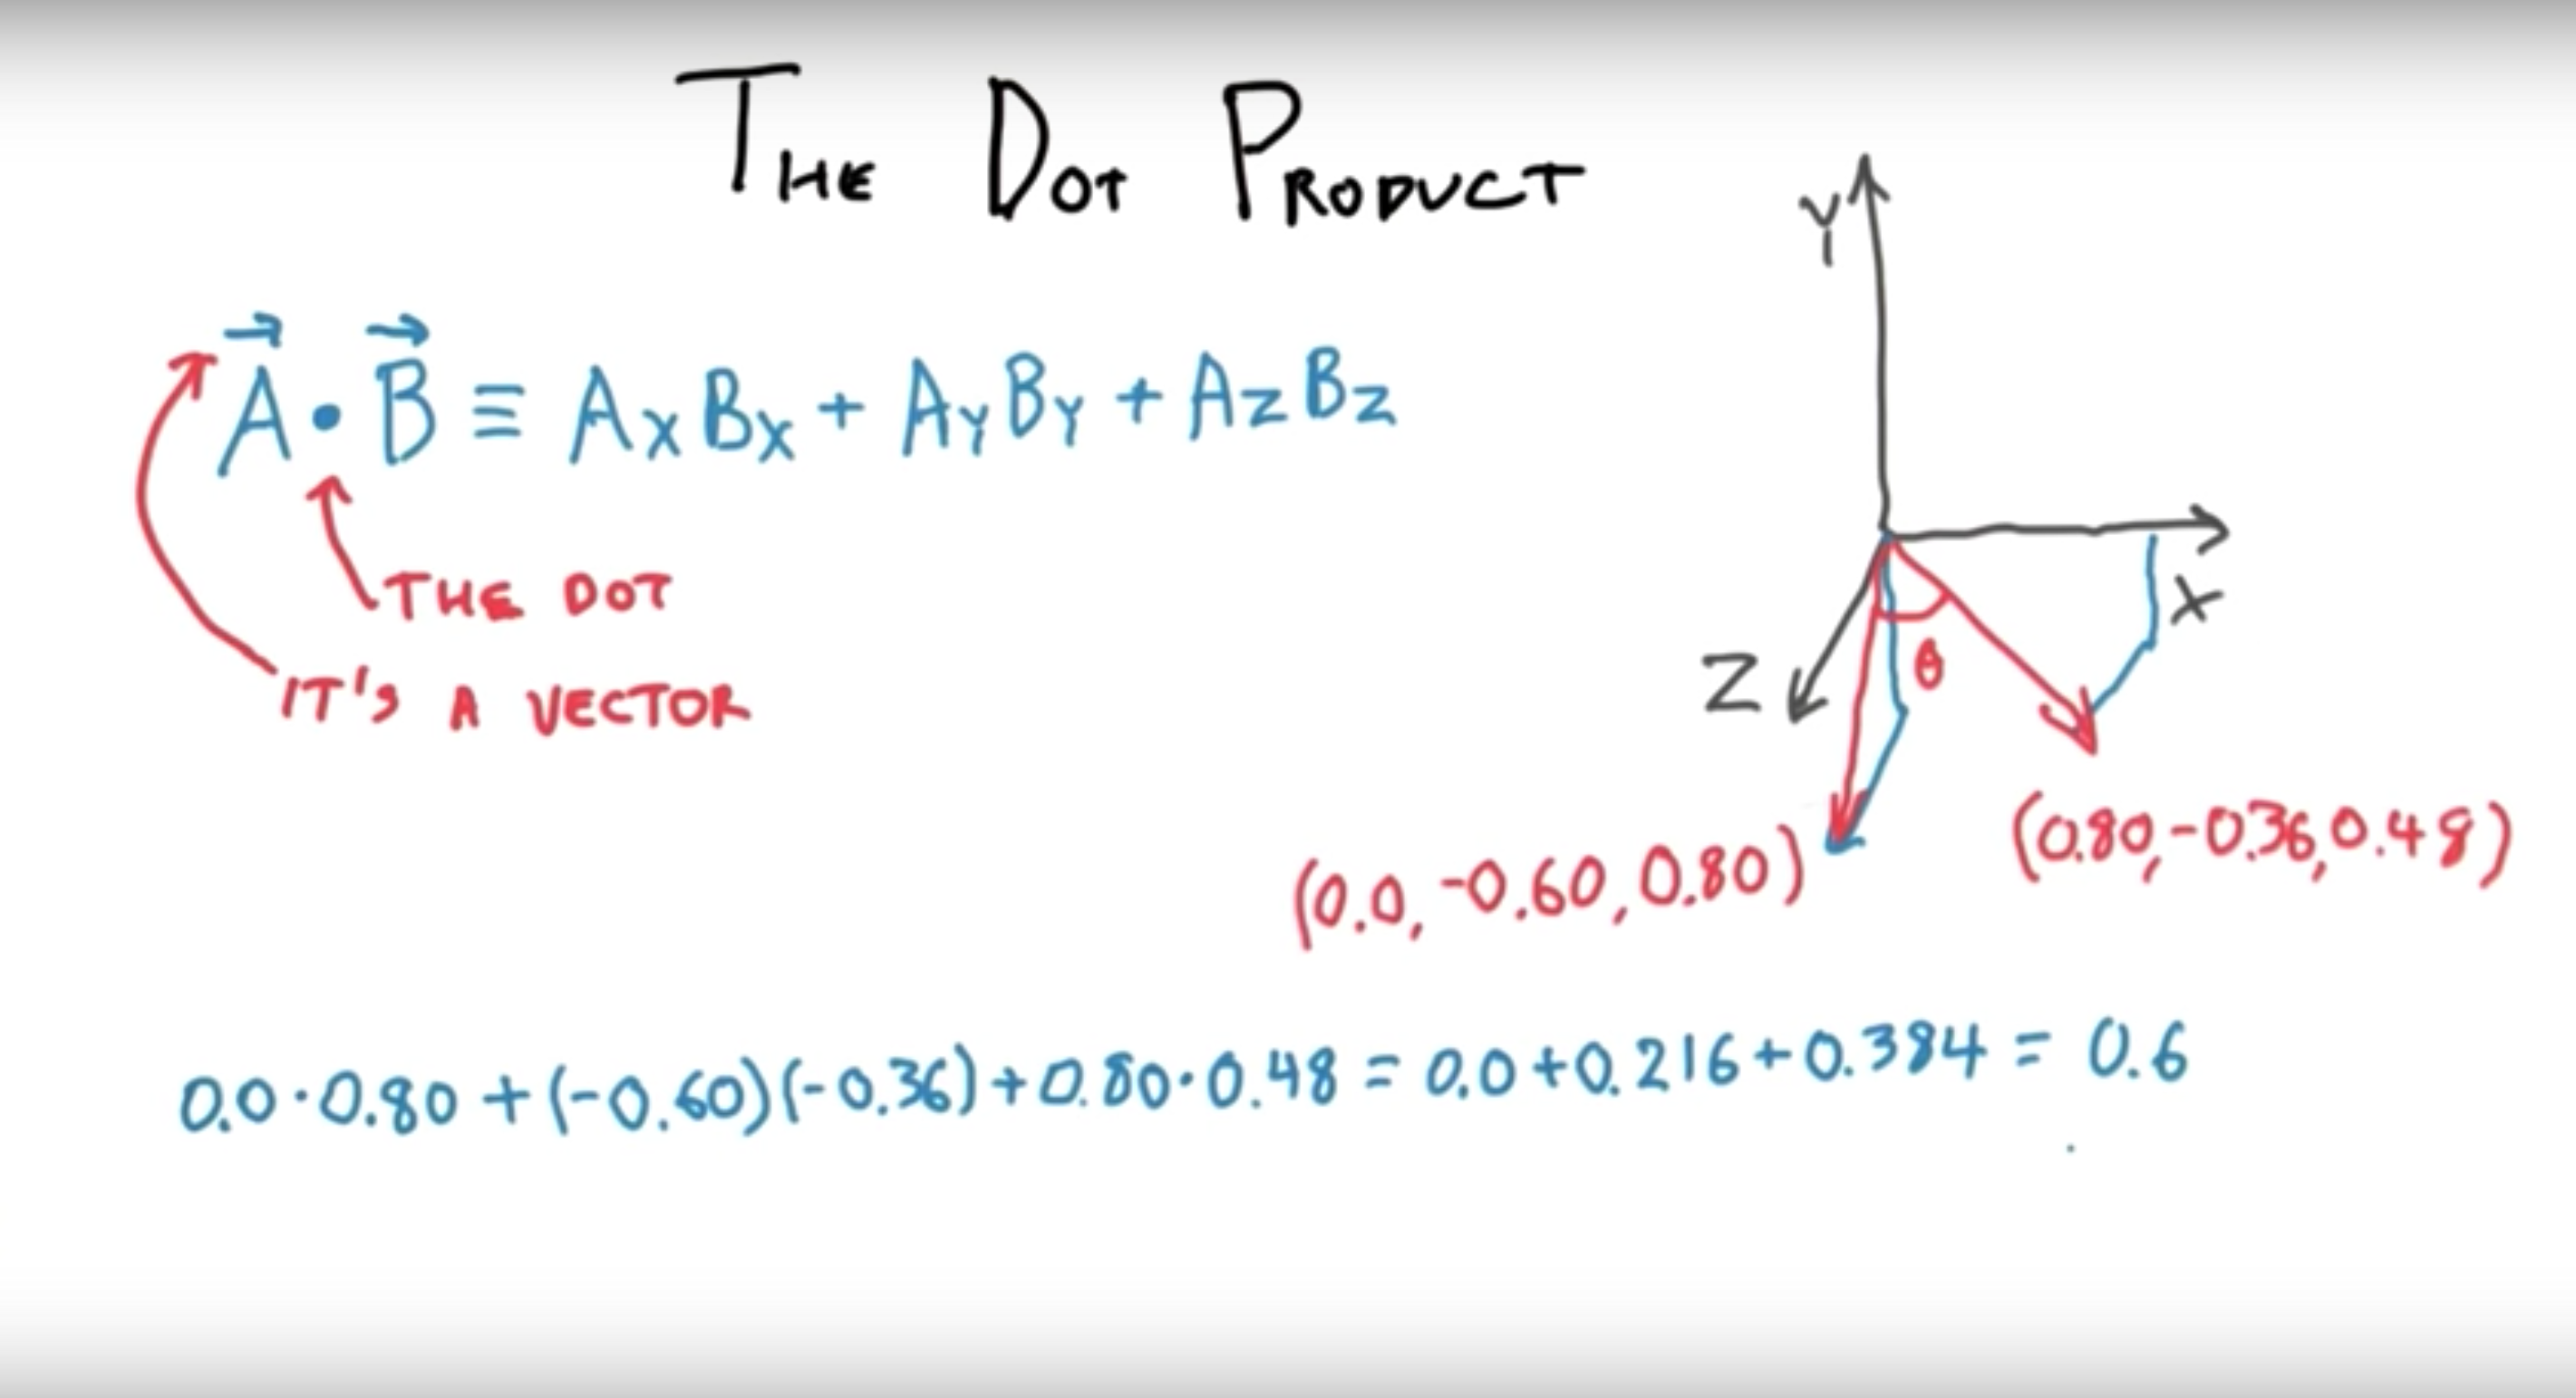 THE DOT PRODUCT
A⃗ • B⃗ ≡ AxBx + AyBy + AzBz
THE DOT
IT'S A VECTOR
Y
X
Z
θ
(0.80,-0.36,0.48)
(0.0,-0.60,0.80)
0.0·0.80+(-0.60)(-0.36)+0.80·0.48=0.0+0.216+0.384=0.6